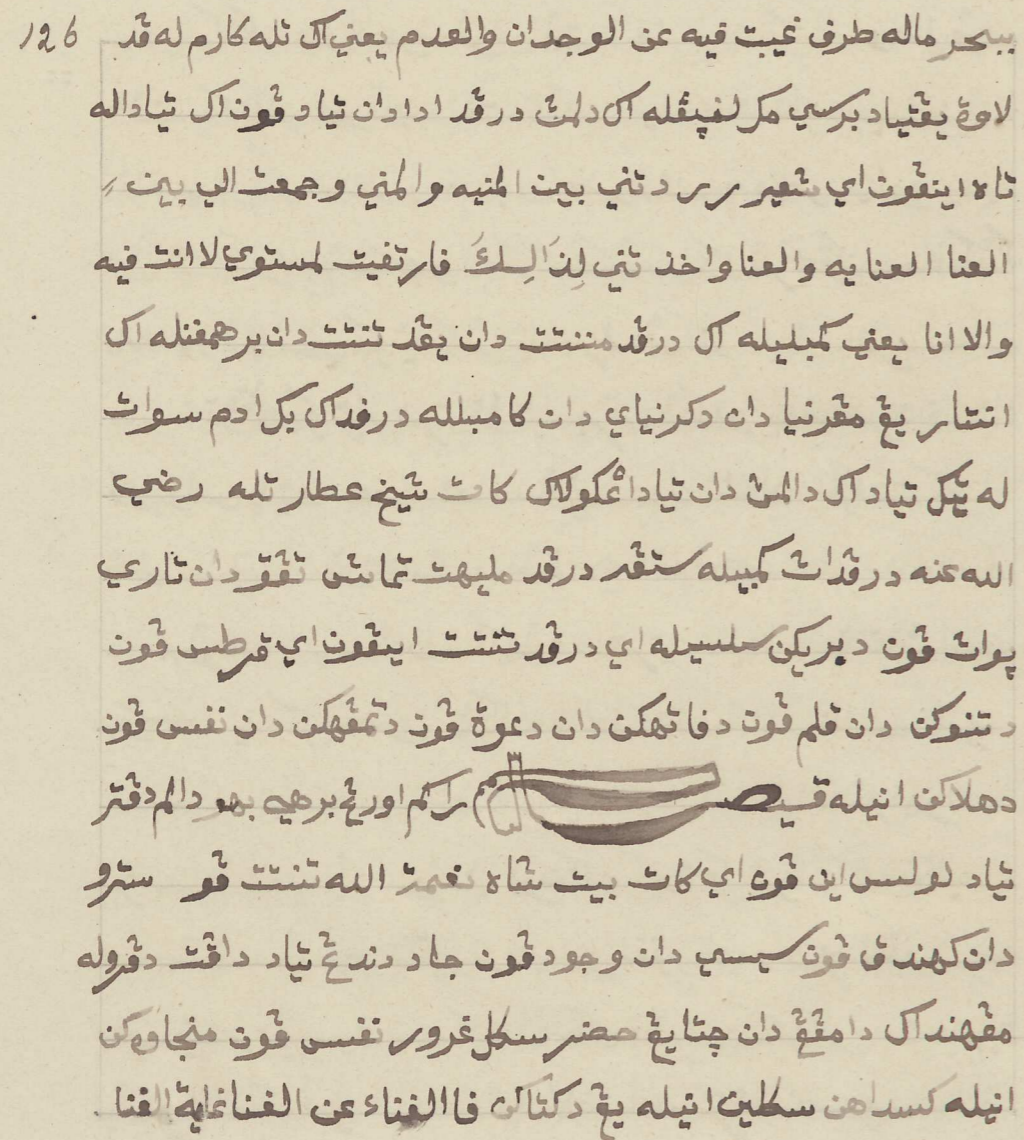 ببحر ماله طرف غيبت فيه عن الوجدان والعدم يعني اک تله کارم له ڤد 126
لاوة يڠتياد برسي مک لڽڤله اک دالمڽ درڤد ادا دان تياد ڤون اک تياداله
تاه اينڤون اي شعير دتني بين المنيه والمني وجمعت الي بين
العنا العنايه والعنا واخذ تني لذالك فارتفيت لمستوي لا انت فيه
والا انا يعني کمبليله اک درڤد منتت دان يڠد تنتت دان برهمڤنله اک
انتار يڠ مڠرنيا دان دکرنياي دان کامبلله درفداک بک ادم سوات
له تيک تياد اک دالمڽ دان تياد اڠکولاک کات شيخ عطار تله رضي
الله عنه درڤداڽ کمبيله ستڤه درڤد مليهت تماش تڤق دان تاري
ڤون ديريکن سلسيله اي درڤد تنتت اينڤون اي قرطس ڤون
دتنوکن دان قلم ڤون دفاتهکن دان دعوة ڤون دتمڤهکن دان نفس ڤون
دهلاکن انيله راکم اورڠ برهي بهو دالم دفتر
تياد لولس اين ڤون اي کات بيت شاه نعمة الله تنتت ڤو سترو
دان کهندق ڤون سيسي دان وجود ڤون جاد دندڠ تياد داڤت دڤروله
مڠهنداک دامڤڠ دان چتا يڠ حضر سکل غرور نفس ڤون منجاوهکن
انيله کسداهن سکلين انيله يڠ دکتاکن فاالفناء عن الفنا غاية الفنا